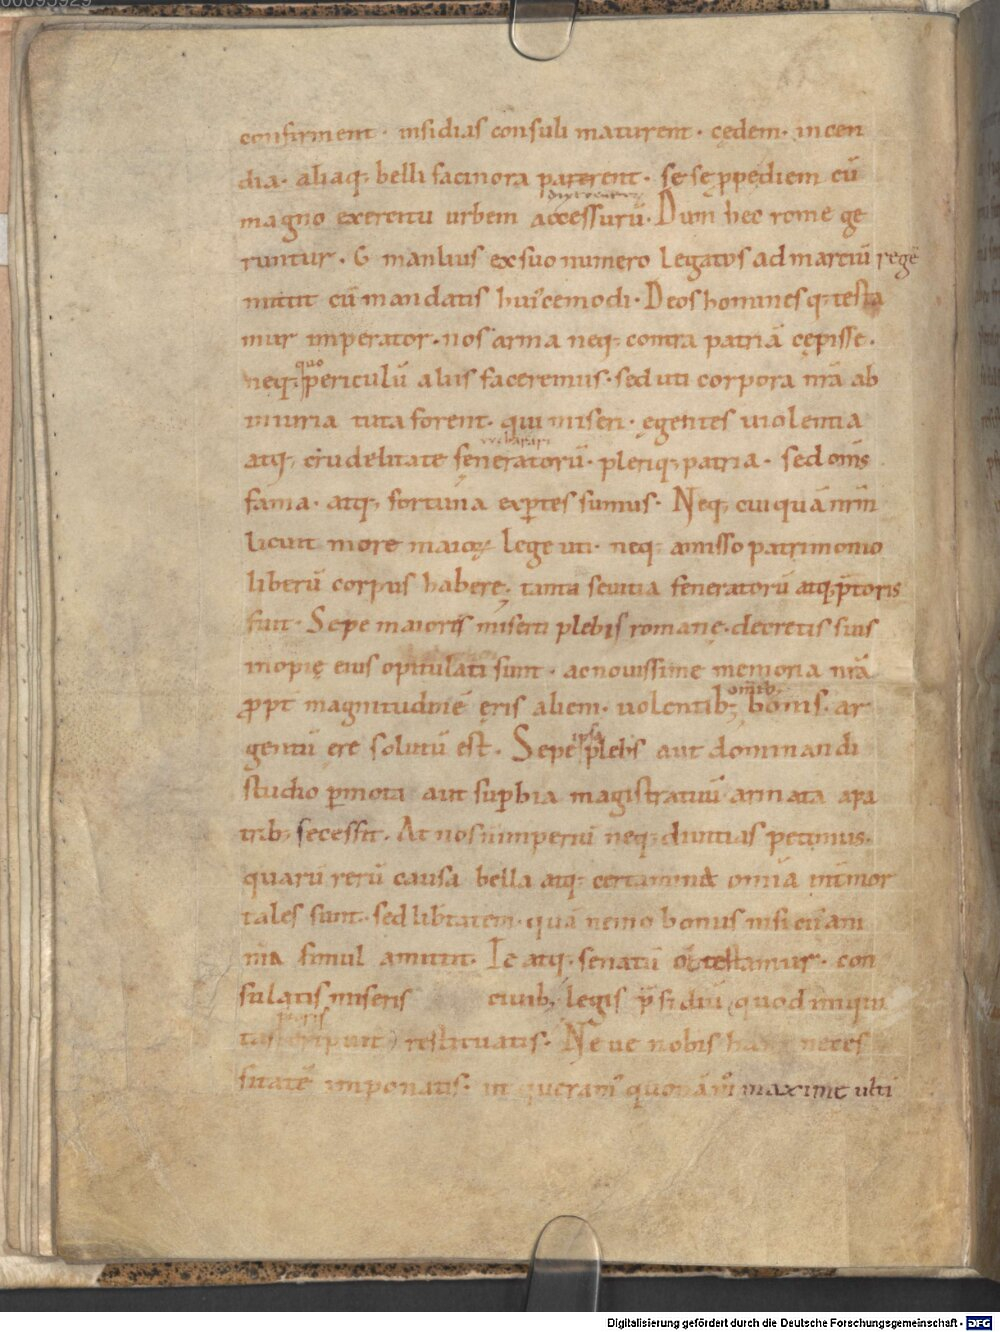 confirment · insidias consuli maturent · cędem · incen
dia · aliaq; belli facinora parerent · se sę ꝓpediem cū
magno exercitu urbem accessurū · Dum hec rome ge
runtur · G manlius ex suo numero legatos ad martiū regē
mittit cū mandatis huicemodi · Deos hominesq; testa
mur imperator · nos arma neq; contra patriā cępisse ·
neq; quo periculū aliis faceremus · sed uti corpora nr̄a ab
iniuria tuta forent · qui miseri · ęgentes uiolentia
atq; crudelitate fęneratorū · pleriq; patria · sed om̄s
fama · atq; fortuna exꝑtes sumus · Neq; cuiquā nr̄m
licuit more maioꝝ lege uti · neq; amisso patrimonio
liberū corpus habere; tanta seuitia feneratorū atq; p̄toris
fuit · Sepe maiores miserti plebis romanę · decretis suis
inopię eius opitulati sunt · ac nouissime memoria nr̄a
ꝓpt̄ magnitudinē ęris alieni · uolentib; omib; bonis · ar
gentū ere solutū est · Sepe ipsa plebs aut dominandi
studio ꝑmota aut suꝑbia magistratuū armata a pa
trib; secessit · At nos n̄ imperiū neq; diuitias petimus ·
quarū rerū causa bella atq; certamina om̄ia int̄ mor
tales sunt · sed lib̄tatem · quā nemo bonus nisi cū ani
ma simul amittit · Te atq; senatū obtestamur · con
sulatis miseris ciuib; legis p̄sidiū quod iniqui
tas pretoris eripuit restituatis · Ne ue nobis hanc neces
sitatē imponatis · ut queram̄ quonā m̊ maxime ulti